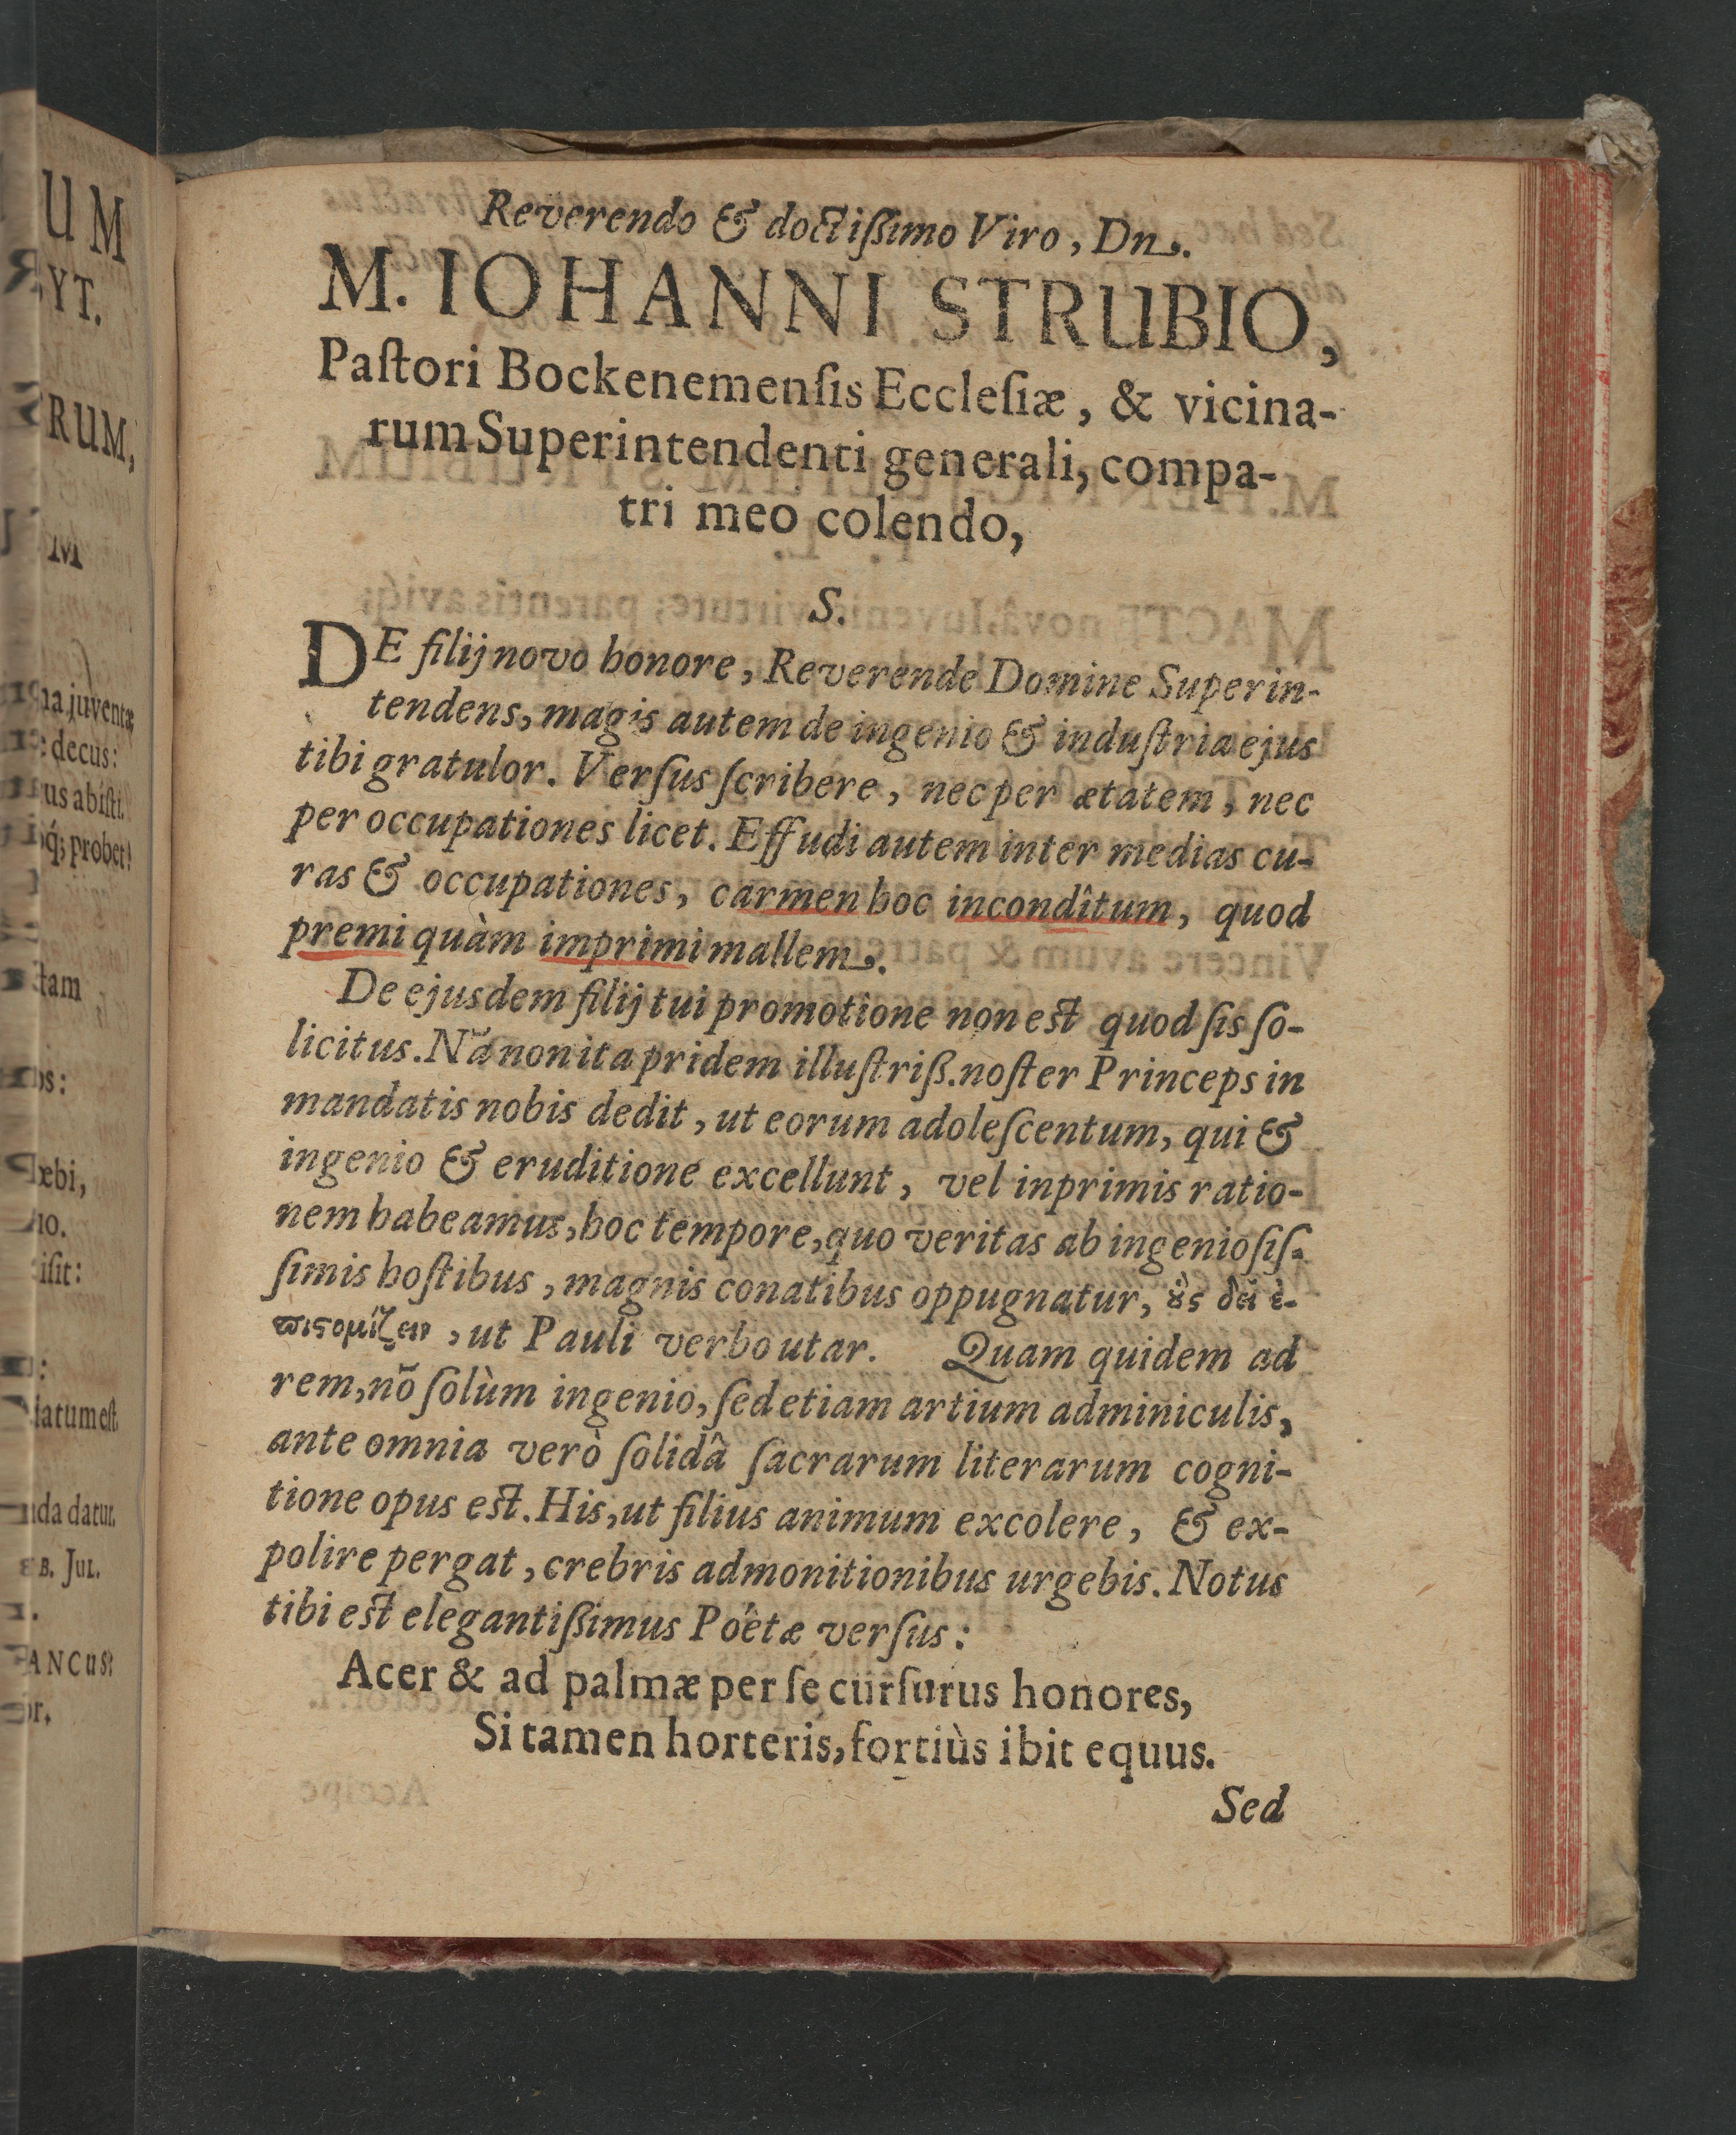 UM
YT.
RUM,
M
na juventæ
decus:
us abiſti.
óq́; probet!
tam
os:
æbi,
io.
iſit:
iatum eſt.
nda datur.
B. Jul.
ANCUS
or.
Reverendo & doctißimo Viro, Dn.
M. IOHANNI STRUBIO,
Paſtori Bockenemenſis Eccleſiæ, & vicina-
rum Superintendenti generali, compa-
tri meo colendo,
S.
DE filij novo honore, Reverende Domine Superin-
tendens, magis autem de ingenio & induſtria ejus
tibi gratulor. Verſus ſcribere, nec per ætatem, nec
per occupationes licet. Effudi autem inter medias cu-
ras & occupationes, carmen hoc incondîtum, quod
premi quàm imprimi mallem.
De ejusdem filij tui promotione non est quod ſis ſo-
licitus. Nã non ita pridem illuſtriß. noſter Princeps in
mandatis nobis dedit, ut eorum adoleſcentum, qui &
ingenio & eruditione excellunt, vel inprimis ratio-
nem habeamus, hoc tempore, quo veritas ab ingenioſiſ-
ſimis hoſtibus, magnis conatibus oppugnatur, ȣ̔̀ς δεῖ ἐ-
πιϛομίζειν, ut Pauli verbo utar. Quam quidem ad
rem, nõ ſolùm ingenio, ſed etiam artium adminiculis,
ante omnia verò ſolidâ ſacrarum literarum cogni-
tione opus est. His, ut filius animum excolere, & ex-
polire pergat, crebris admonitionibus urgebis. Notus
tibi est elegantißimus Poëtæ verſus:
Acer & ad palmæ per ſe curſurus honores,
Si tamen horteris, fortiùs ibit equus.
Sed